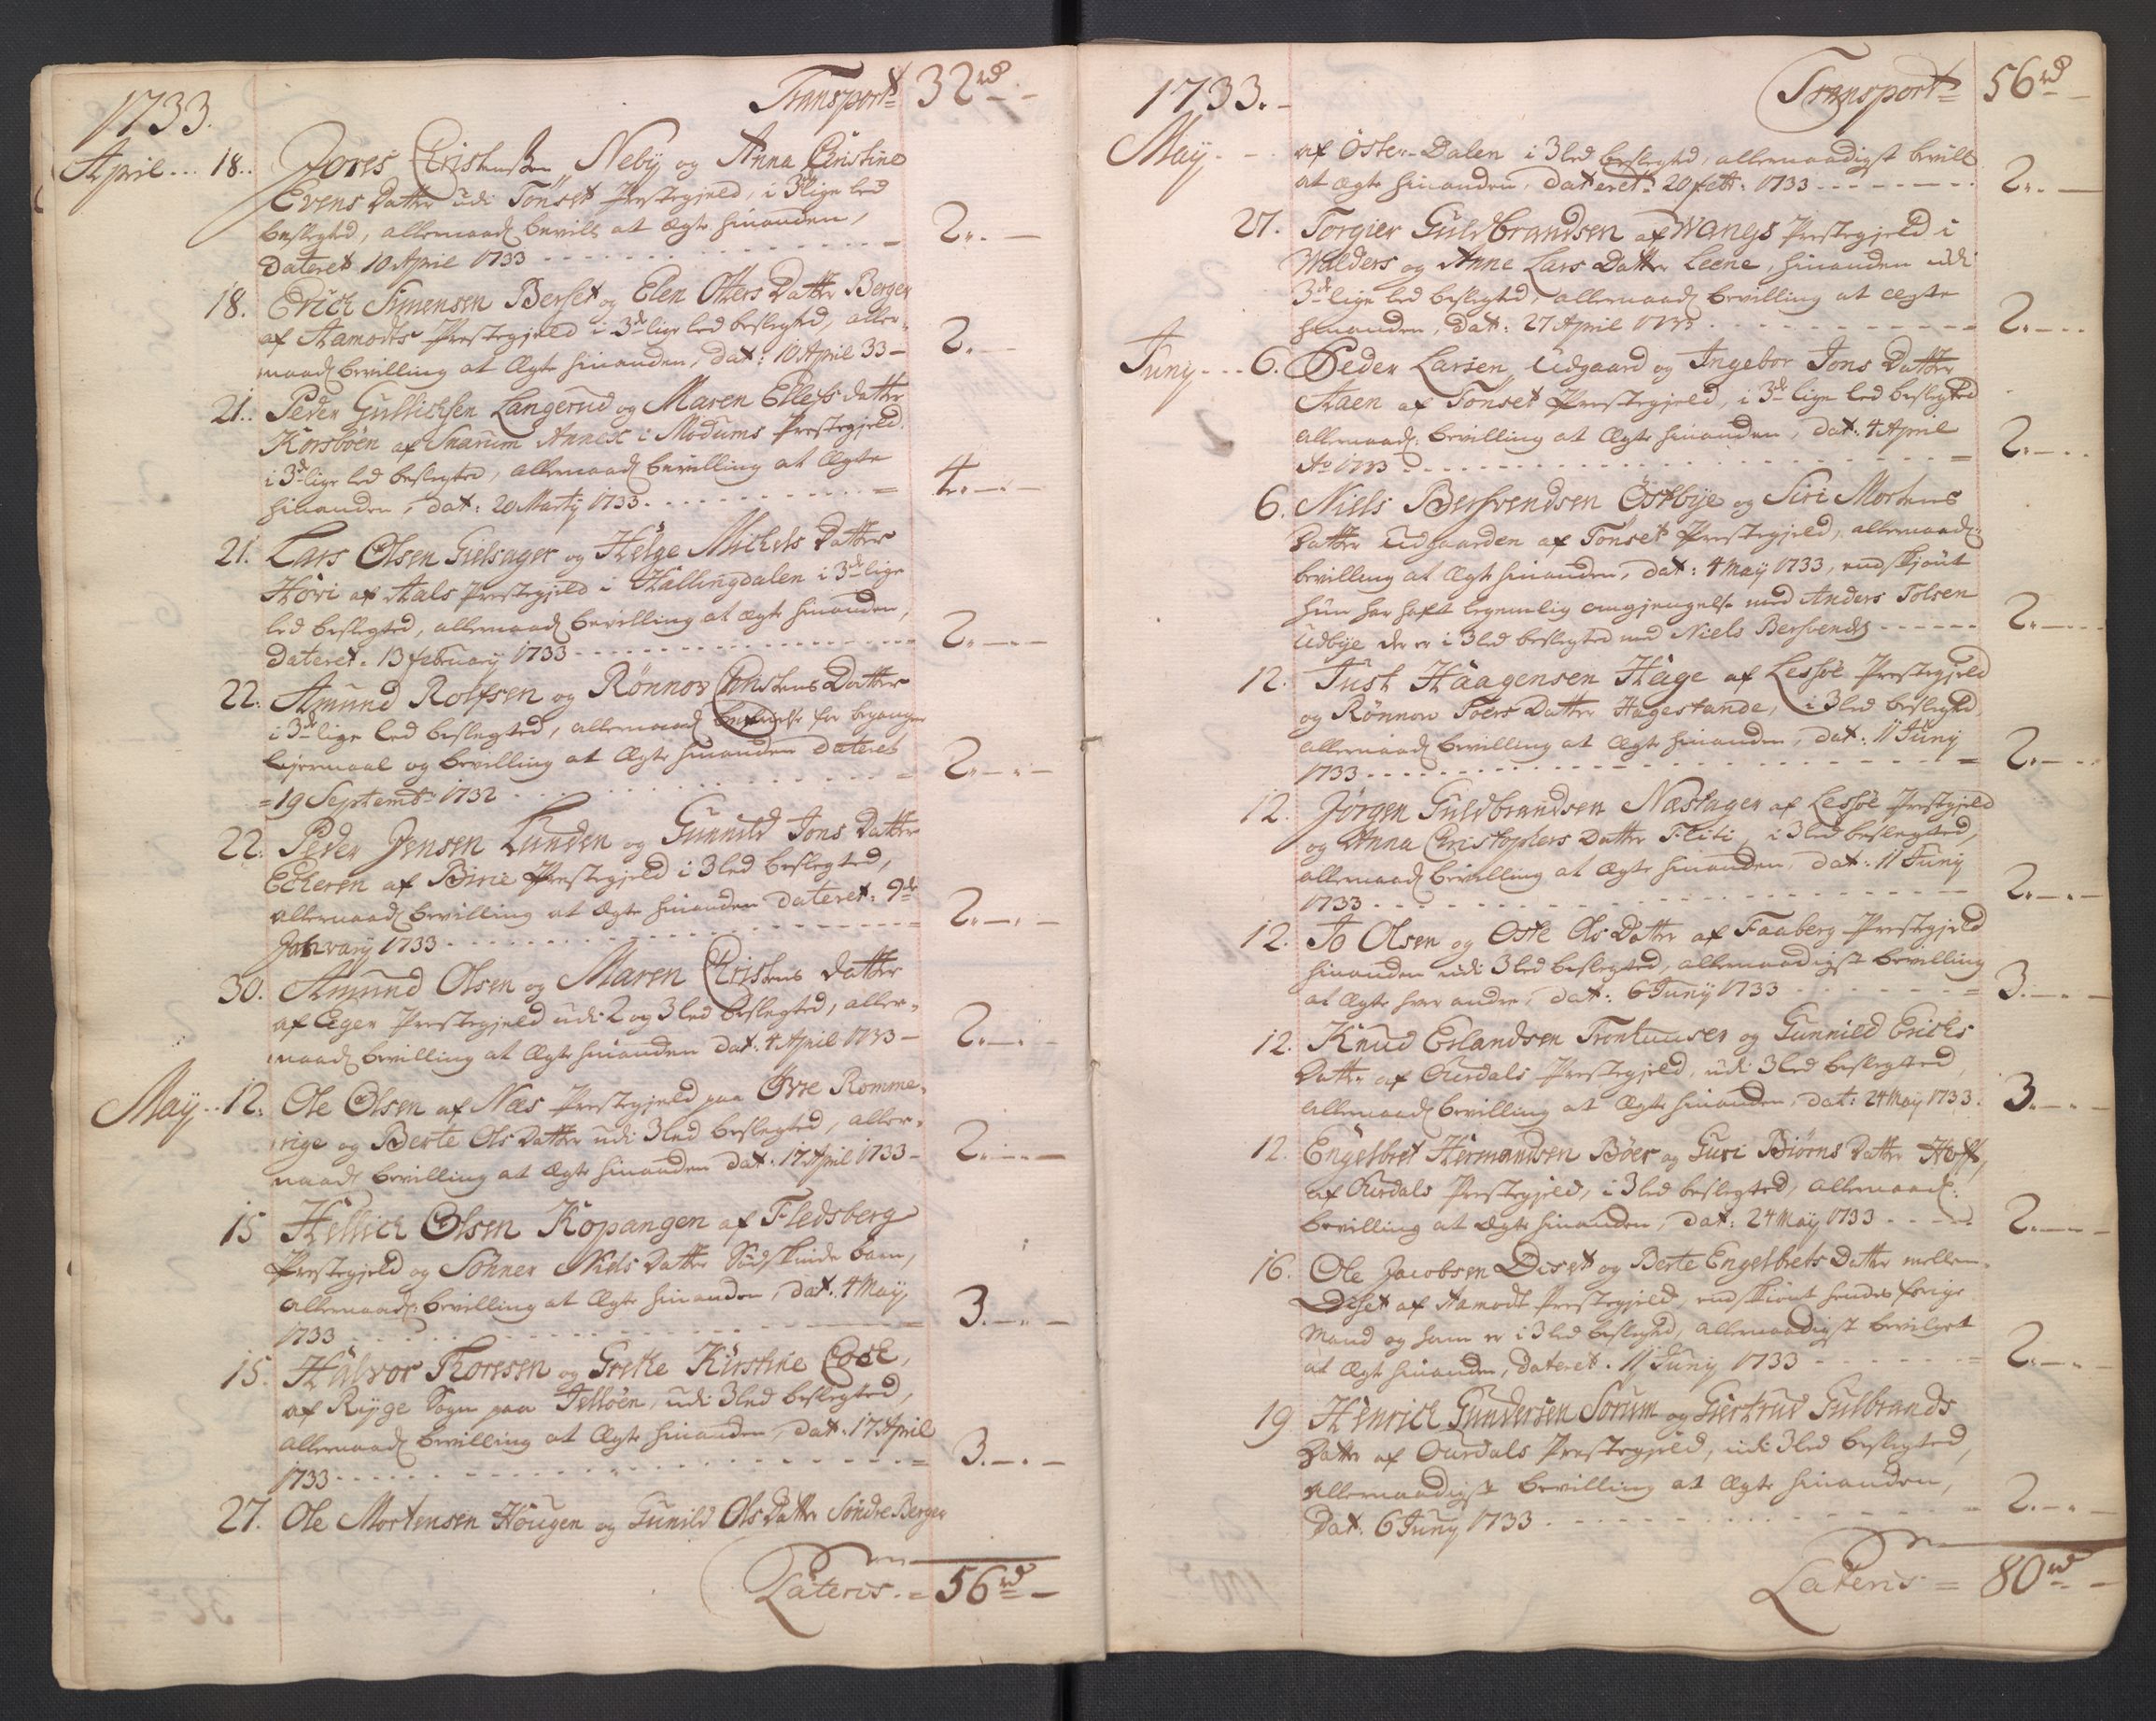 1733. Transport 32 rd
April 18. Jores Christensen Neby og Anna Christine
Evens Datter udi Tönset Prestegield, i 3de lige led
beslegted, allernaad: bevills at Ægte hinanden,
Dateret 10 April 1733 2.
18. Erich Simensen Berset og Elen Otters Datter Berger
af Aamodts Prestegield i 3de lige led beslegted, aller-
naad: bevilling at Ægte hinanden, dat: 10 April 33 2.
21. Peder Gullichsen Langerud og Maren Ellefs datter
Korsböen af Snarum Annex i Modums Prestegield
i 3de lige led beslegted, allernaad: bevilling at Ægte
hinanden, dat: 20 Marty 1733. 4.
21. Lars Olsen Gielsager og Helge Michels Datter
Höri af Aals Prestegield i Hallingdalen i 3de lige
led beslegted, allernaad: bevilling at ægte hinanden,
Dateret. 13 february 1733 2.
22. Amund Rolfsen og Rönnov Christens Datter
i 3de lige led beslegted, allernaad: befrielse for begangne
leyermaal og bevilling at Ægte hinanden dateret
19 Septembr 1732 2.
22. Peder Jensen Lunden og Gunnild Jons Datter
Eckeren af Birie Prestegield i 3 led beslegted,
allernaad: bevilling at Ægte hinanden dateret. 9de
January 1733 2.
30. Amund Olsen og Maren Christens datter
af Eger Prestegield udi 2 og 3 led beslegted, aller-
naad: bevilling at Ægte hinanden dat. 4 April 1733 2.
May 12. Ole Olsen af Næs Prestegield paa Övre Romme-
rige og Berte Ols Datter udi 3 led beslegted, aller-
naad: bevilling at Ægte hinanden dat. 17 April 1733 2.
15 Hellich Olsen Kopangen af Fledsberg
Prestegield og Sönner Niels Datter Södskinde barn,
allernaad: bevilling at Ægte hinanden, dat. 4 May
1733 3.
15. Halvor Thoresen og Grethe Kirstine Cock,
af Rygge Sogn paa Jellöen, udi 3 led beslegted,
allernaad: bevilling at Ægte hinanden, dat. 17 April
1733 3.
27. Ole Mortensen Hougen og Gunild Ols Datter Söndre Berger
Lateris = 56 rd
1733. Transport 56 rd
May af Öster-Dalen i 3 led beslegted, allernaadigst bevilt
at ægte hinanden, dateret: 20 febr: 1733 2.
27. Torgier Guldbrandsen af Wangs Prestegield i
Walders og Anne Lars Datter Leene, hinanden udi
3de lige led beslegted, allernaad: bevilling at ægte
hinanden, dat: 27 April 1733. 2.
Juny 6. Peder Larsen Udgaard og Ingebor Jons Datter
Aaen af Tönset Prestegield, i 3de lige led beslegted
allernaad: bevilling at Ægte hinanden, dat: 4 April
Ao 1733 2.
6. Niels Bersvendsen Östbye og Siri Mortens
Datter Udgaarden af Tönset Prestegield, allernaad:
bevilling at Ægte hinanden, dat: 4 May 1733, endskjönt
hun har haft legemlig omgjengelse med Anders Tolsen
Udbye der er i 3 led beslegted med Niels Bersvends: 2.
12. Just Haagensen Hage af Lessöe Prestegield
og Rönnow Poers Datter Hagestande, i 3 led beslegted,
allernaad: bevilling at Ægte hinanden, dat: 11 Juny
1733 2.
12. Jörgen Guldbrandsen Næstager af Lessöe Prestegield
og Anna Christophers Datter Fliti, i 3 led beslegted,
allernaad: bevilling at Ægte hinanden, dat: 11 Juny
1733 2.
12. Jo Olsen og Oste Ols Datter af Faaberg Prestegield
hinanden udi 3 led beslegted, allernaadigst bevilling
at Ægte hver andre, dat: 6 Juny 1733 3.
12. Knud Erlandsen Tronhuuser og Gunnild Erichs
Datter af Ourdals Prestegield, udi 3 led beslegted,
allernaad: bevilling at Ægte hinanden, dat: 24 May 1733. 3.
12. Engelbret Hermandsen Böer og Guri Biörns Datter Hoff,
af Ourdals Prestegield, i 3 led beslegted, allernaad:
bevilling at ægte hinanden, dat: 24 May 1733 2.
16. Ole Jacobsen Diset og Berte Engelbrets Datter mellem
Diset af Aamodt Prestegield, endskiönt hendes forige
Mand og ham er i 3 led beslegted, allernaadigst bevilget
at Ægte hinanden, dateret. 11 Juny 1733 2.
19 Henrich Gundersen Sorum og Giertrud Gulbrands
Datter af Ourdals Prestegield, udi 3 led beslegted,
allernaadigst bevilling at Ægte hinanden,
Dat. 6 Juny 1733 2.
Lateris = 80 rd